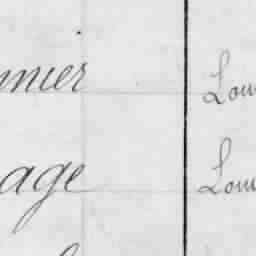 nier Lou
age Lou